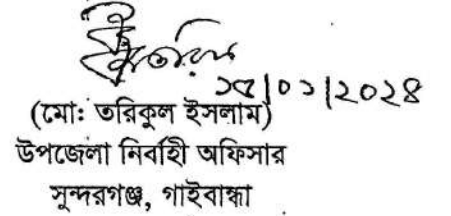 ১৫/০১/২০২৪
(মো: তরিকুল ইসলাম)
উপজেলা নির্বাহী অফিসার
সুন্দরগঞ্জ, গাইবান্ধা